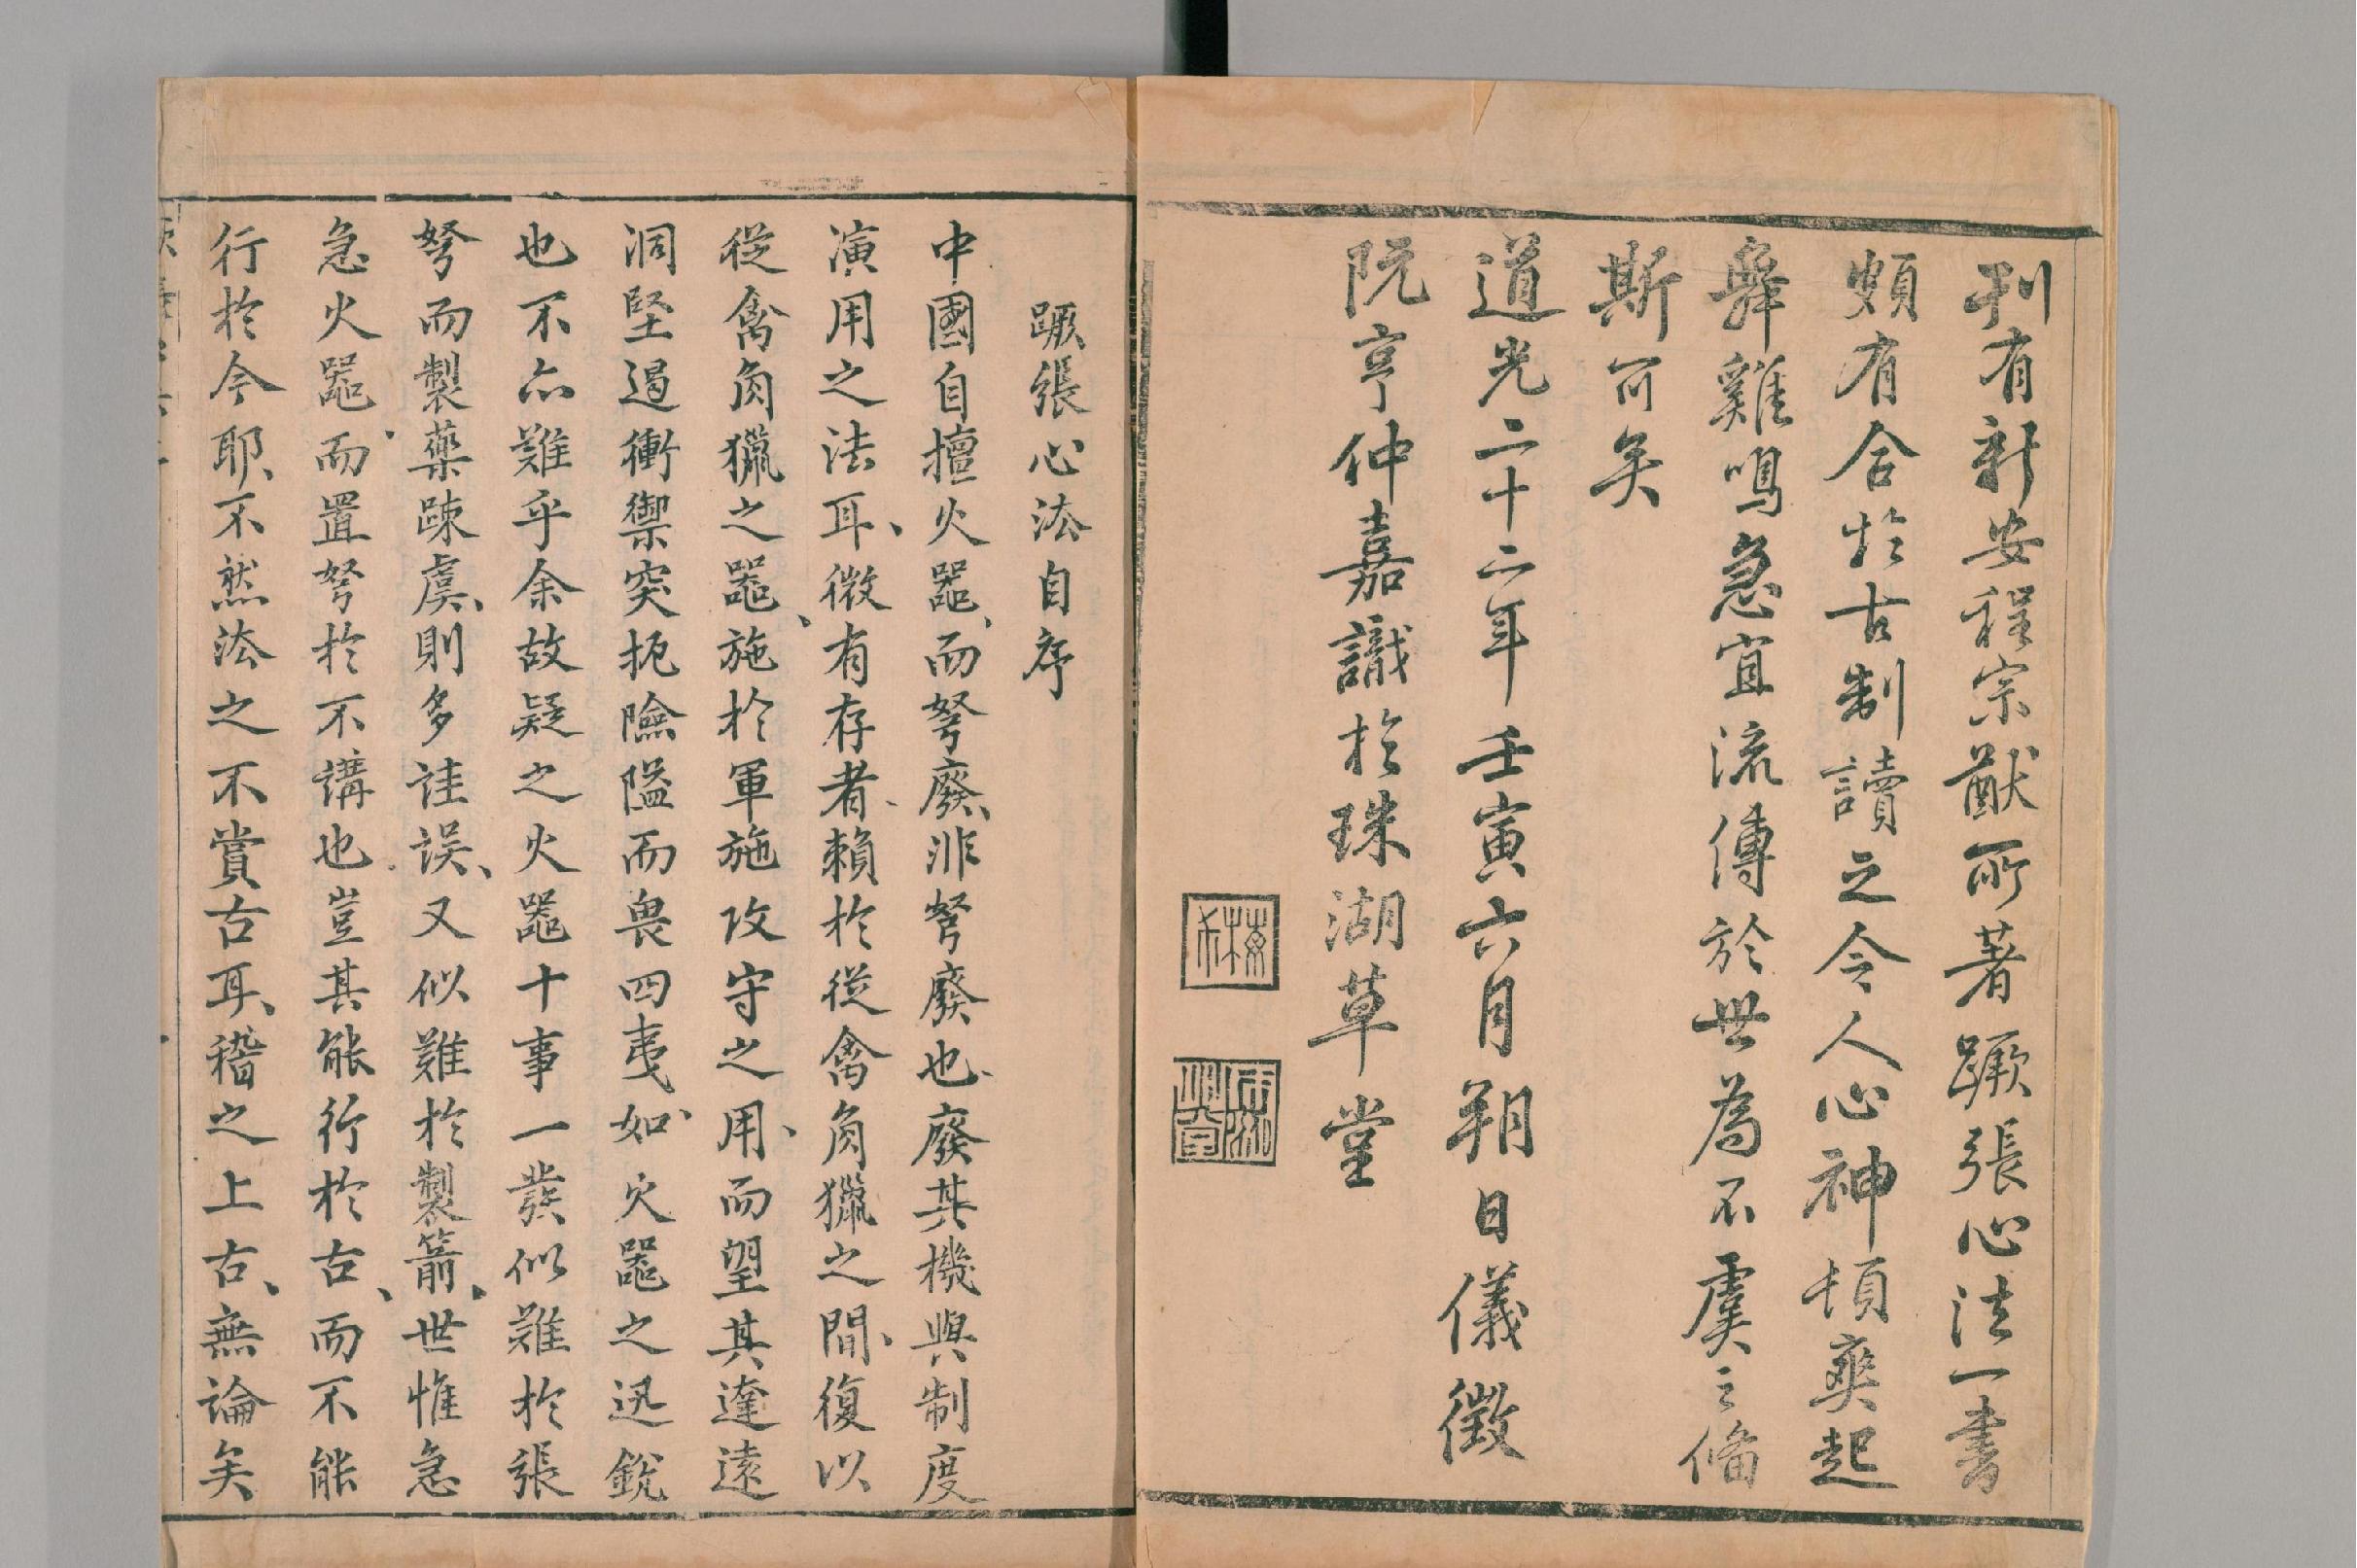 刊有新安程宗猷所著蹶張心法一書
頗有合於古制讀之令人心神頓爽起
舞雞鳴急宜流傳於世為不虞之俻
斯可矣
道光二十二年壬寅六月朔日儀徵
阮亨仲嘉識於珠湖草堂
蹶張心法自序
中國自擅火器、而弩廢、非弩廢也、廢其機與制度
演用之法耳、微有存者、賴於從禽角獵之間、復以
從禽角獵之器、施於軍施攻守之用、用而望其達遠
洞堅遏衝禦突扼險隘而畏四夷、如火器之迅銳
也不亦難乎余故疑之火器十事一發似難於張
弩而製藥踈虞、則多诖误、又似難於製箭、世惟急
急火器、而置弩於不講也豈其能行於古、而不能
行於今耶、不然法之不賞古耳、稽之上古、無論矣